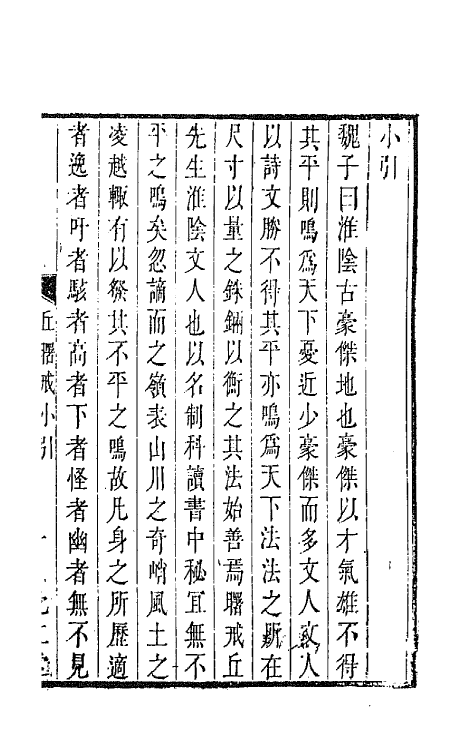 小引
魏子曰淮陰古豪傑地也豪傑以才氣雄不得
其平則鳴為天下憂近少豪傑而多文人文人
以詩文勝不得其平亦鳴為天下法法之所在
尺寸以量之銖鎦以衡之其法始善焉曙戒丘
先生淮陰文人也以名制科讀書中秘宜無不
平之鳴矣忽謫而之嶺表山川之奇峭風土之
凌越輙有以發其不平之鳴故凡身之所歷適
者逸者吁者駭者高者下者怪者幽者無不見
丘曙戒小引